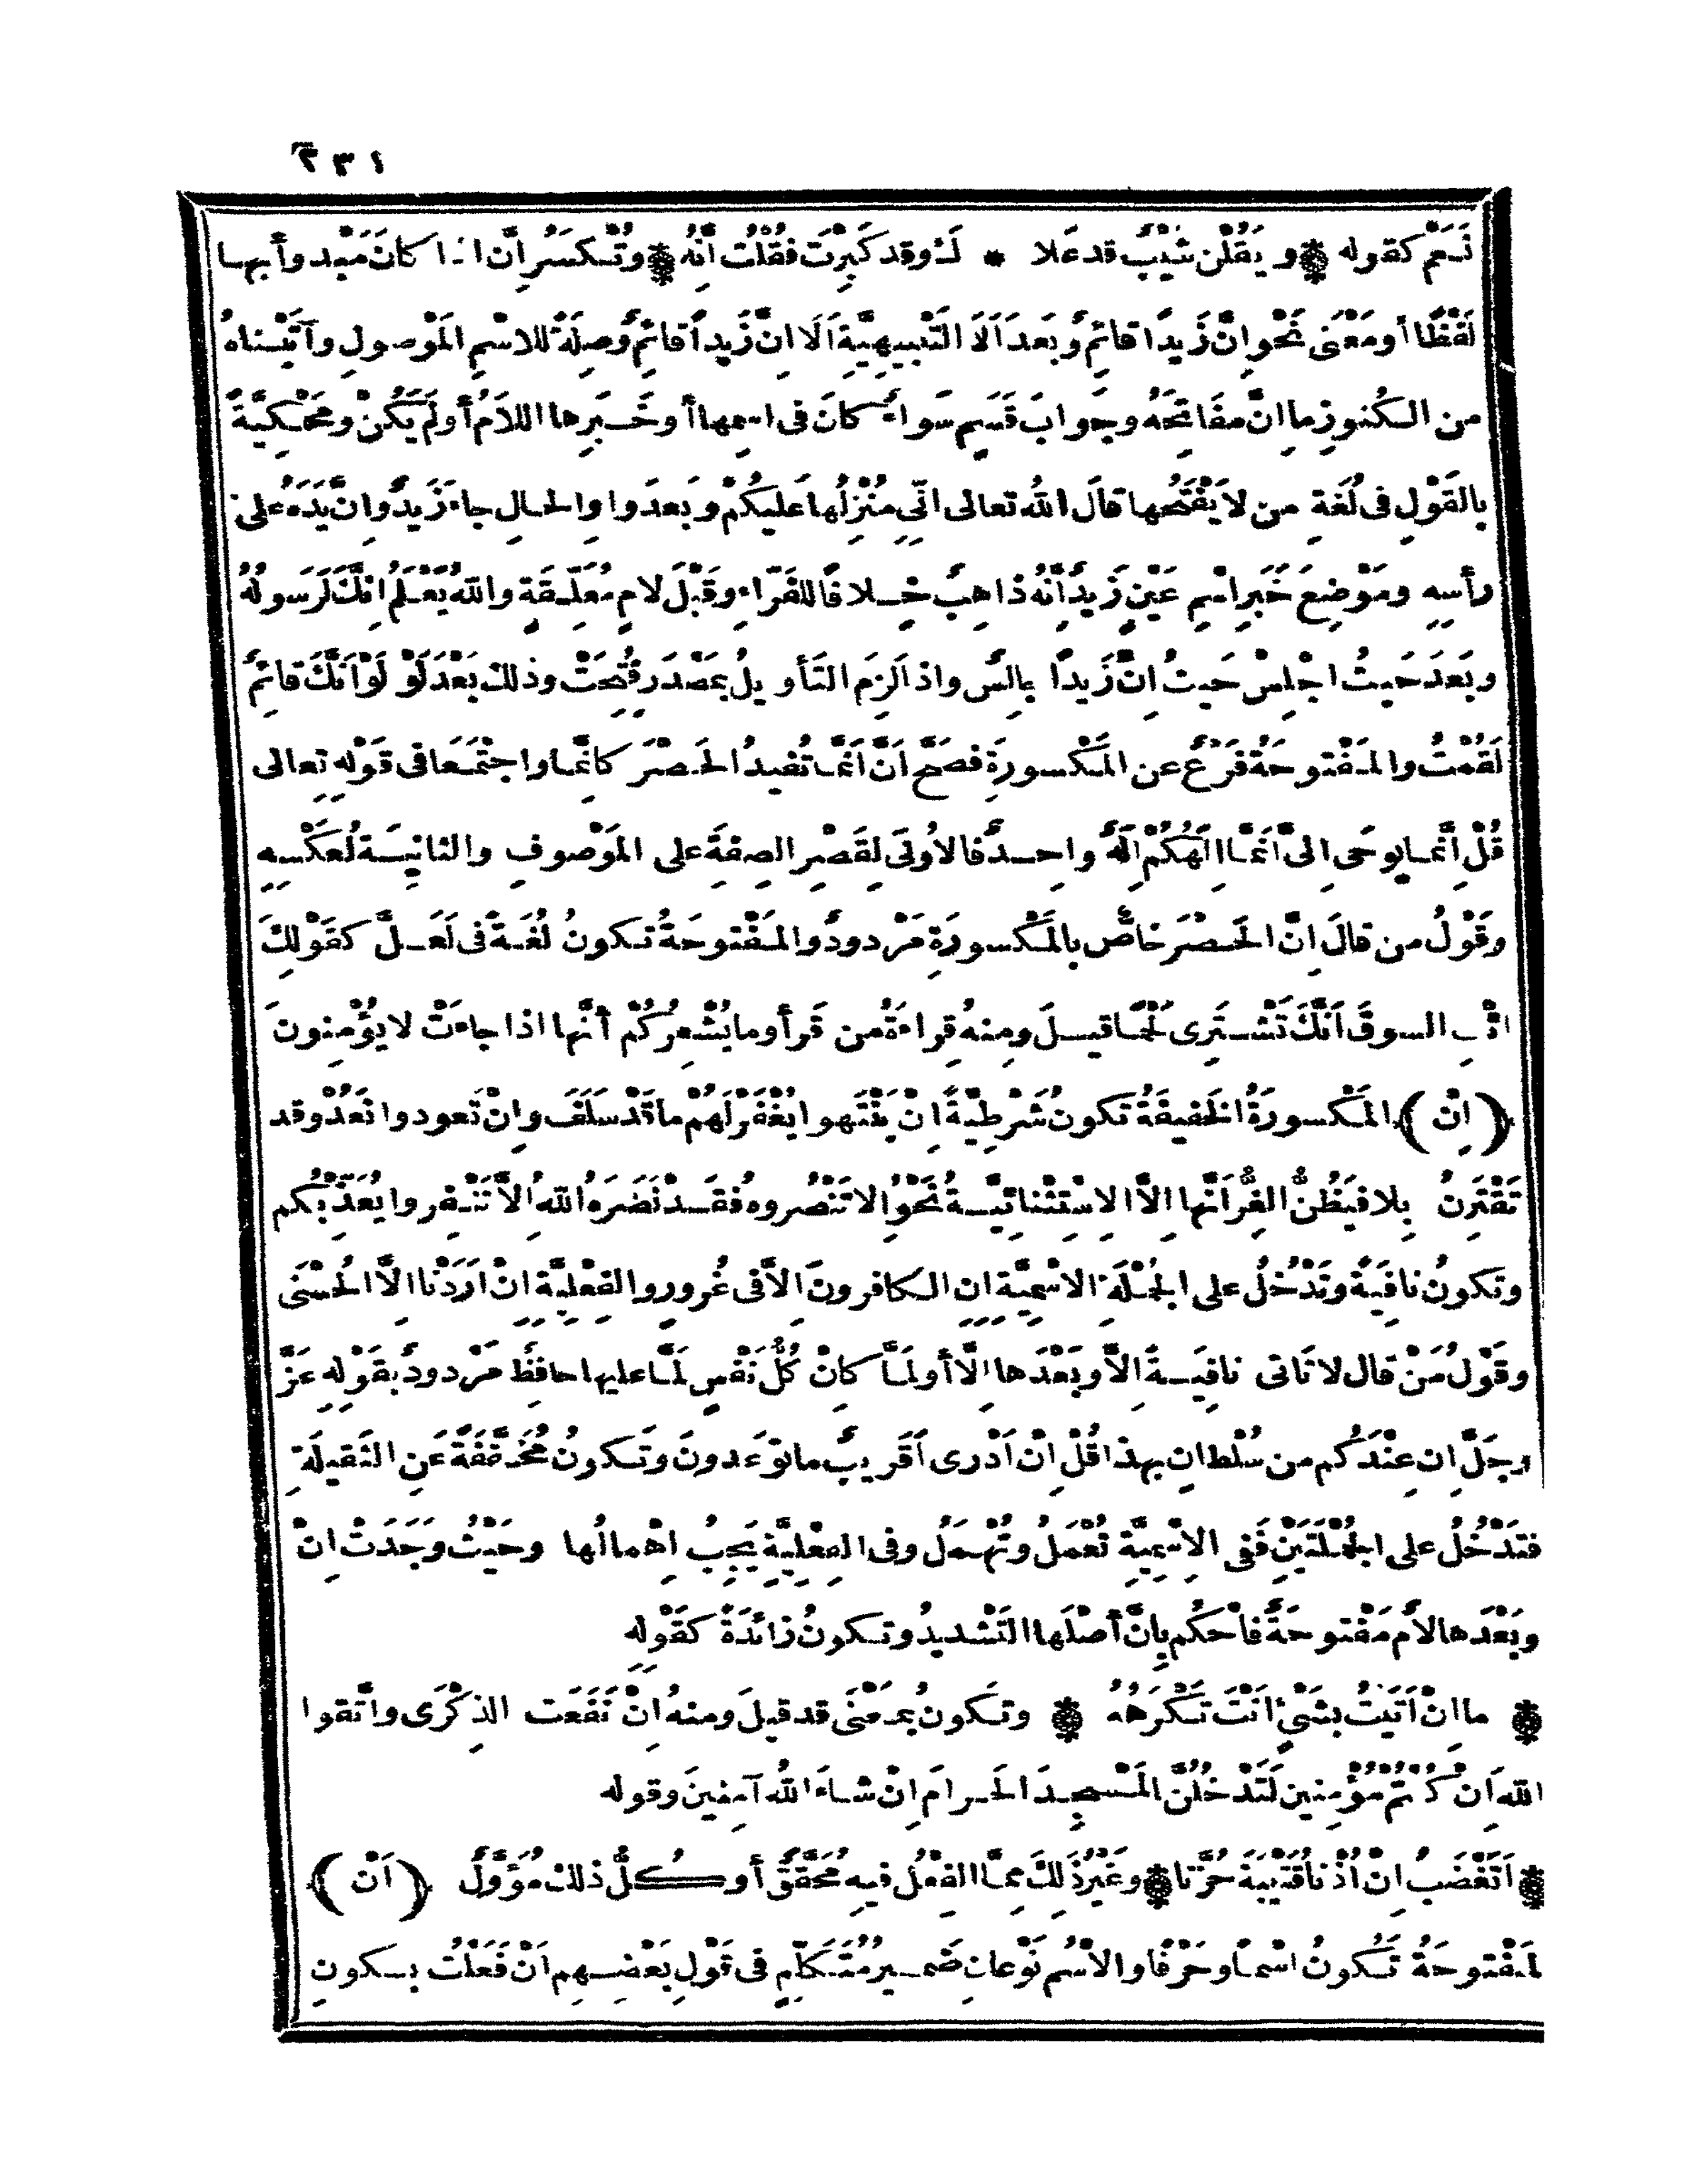 ٢٣١
نَعَمْ كقوله * و يَقُلْنَ شَيْبٌ قد عَلا * كَ وقد كَبِرْتَ فقُلْتُ اِنَّهْ * وتُكسَرُ اِنَّ اذا كانَ مَبْدوأ بها
لَفْظًا أو مَعْنى نَحْو اِنَّ زَيدًا قائِمٌ وبَعدَ اَلَا التَنْبِيهِيَّةِ اَلَا اِنَّ زَيداً قائِمٌ وصِلَةً للاسْمِ المَوْصولِ وآتَيْناهُ
من الكُنوزِ ما اِنَّ مفَاتِحَهُ وجَوابَ قَسَمٍ سَواءٌ كانَ فى اسمِها أو خَبَرِها اللامُ أو لَم يَكُنْ ومَحْكيَّةً
بالقَوْلِ فى لُغَةِ من لا يَفْتَحُها قالَ اللهُ تعالى اِنّى مُنَزِلُها عَليكُمْ وبَعدَ واوِ الحالِ جاءَ زَيدٌ واِنَّ يَدَهُ على
رأسِهِ ومَوْضِعَ خَبَرِ اسْمِ عَيْنٍ زَيدٌ اِنَّهُ ذاهِبٌ خِلافًا للفَرّاءِ وقَبْلَ لامٍ مُعَلِّقَةٍ واللهُ يَعْلَمُ اِنَّكَ لَرَسولُهُ
وبَعدَ حَيثُ اجْلِسْ حَيثُ اِنَّ زَيدًا جالِسٌ واذا لَزِمَ التَأويلُ بمَصْدَرٍ فُتِحَتْ وذلكَ بَعْدَ لَوْ لَوْ اَنَّكَ قائِمٌ
لَقُمْتُ والمَفْتوحَةُ فَرْعٌ عن المَكْسورَةِ فصَحَّ اَنَّ اَنَّما تُفيدُ الحَصْرَ كاِنَّما واجْتَمَعَا فى قَوْلِهِ تعالى
قُلْ اِنَّما يوحَى اِلىَّ اَنَّمَا اِلٰهُكُمْ اِلٰهٌ واحِدٌ فالاُولَى لِقَصْرِ الصِفَةِ على المَوْصوفِ والثانِيَةُ لعَكْسِهِ
وقَوْلُ من قالَ اِنَّ الحَصْرَ خاصٌّ بالمَكْسورَةِ مَرْدودٌ والمَفْتوحَةُ تكونُ لُغَةً فى لَعَلَّ كقَوْلِكَ
ائْتِ السوقَ اَنَّكَ تَشْتَرِى لَحْمًا قيلَ ومِنهُ قِراءَةُ من قَرأ وما يُشْعِرُكُمْ أنَّها اذا جاءَتْ لا يؤْمِنونَ
﴿ اِنْ ﴾ المَكْسورَةُ الخَفيفَةُ تكونُ شَرْطِيَّةً اِنْ يَنْتَهوا يُغْفَرْ لَهُمْ ما قَدْ سَلَفَ واِنْ تَعودوا نَعُدْ وقد
تَقْتَرِنُ بِلا فيَظُنُّ الغِرُّ اَنَّها اِلَّا الاِسْتِثْنائِيَّةُ نَحْوُ اِلا تَنْصُروهُ فقَدْ نَصَرَهُ اللهُ اِلاَّ تَنْفِروا يُعَذِّبْكُم
وتكونُ نافِيَةً وتَدْخُلُ على الجُمْلَةِ الاسْمِيَّةِ اِنِ الكافِرونَ اِلاَّ فى غُرورٍ والفِعْلِيَّةِ اِنْ اَرَدْنا اِلاَّ الحُسْنَى
وقَوْلُ مَنْ قال لا تَاتى نافِيَةً اِلاَّ وبَعْدَها اِلَّا أو لَمَّا كاِنْ كُلُّ نَفْسٍ لَمَّا عليها حافِظٌ مَرْدودٌ بقَوْلِهِ عَزَّ
وجَلَّ اِن عِنْدَكُم من سُلْطانٍ بهذا قُلْ اِنْ اَدْرى اَقَريبٌ ما توعَدونَ وتَكونُ مُخَفَّفَةً عَنِ الثَقيلَةِ
فتَدْخُلُ على الجُمْلَتَيْنِ فَفى الاِسْمِيَّةِ تُعْمَلُ وتُهْمَلُ وفى الفِعْلِيَّةِ يَجِبُ اِهْمالُها وحَيْثُ وجَدَتْ اِنْ
وبَعْدَها لامٌ مَفْتوحَةٌ فاحْكُم بِاَنَّ أصْلَها التَشْديدُ وتكونُ زائدَةً كقَوْلِهِ
* ما اِنْ اَتَيْتُ بشَىْءٍ اَنْتَ تَكْرَهُهُ * وتكونُ بمَعْنَى قد قيلَ ومنهُ اِنْ نَفَعَت الذِكْرَى واتَّقوا
اللهَ اِنْ كُنْتُمْ مُؤْمِنين لَتَدْخُلُنَّ المَسْجِدَ الحَرامَ اِنْ شاءَ اللهُ آمِنينَ وقوله
* اَتَغْضَبُ اِنْ اُذْنا قُتَيْبَةَ حُزَّتا * وغَيْرُ ذَلِكَ مِمَّا الفِعْلُ فيهِ مُحَقَّقٌ أو كُلُّ ذلك مُؤَوَّلٌ ﴿ اَنْ ﴾
لمَفْتوحَةُ تَكونُ اسْمًا وحَرْفًا والاسْمُ نَوْعانِ ضَميرُ مُتَكَلِّمٍ فى قَوْلِ بَعْضِهِم اَنْ فَعَلْتُ بسكونِ